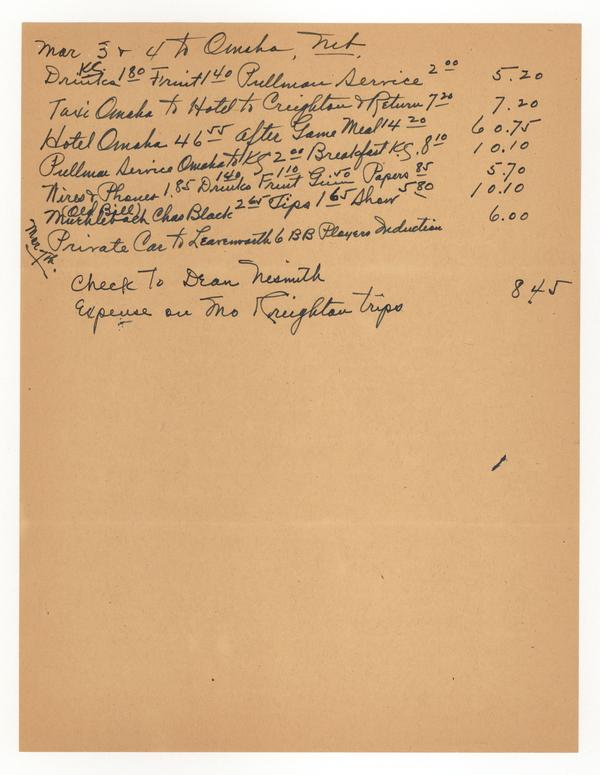 Mar 3 & 4 to Omaha, Neb.
KC
Drinks 1 80 Fruit 1 40 Pullman Service 2 00 5.20
Taxi Omaha to Hotel to Creighton & Return 7 20 7.20
Hotel Omaha 46 55 after Game Meal 14 20 60.75
Pullman Service Omaha to KC 2 00 Breakfast K.C. 8 10 10.10
Wires & Phones 1.85 Drinks 1 40 Fruit 1 10 Gum 50 Papers 85 5.70
(Old Bill)
Muehlebach Chas Black 2 65 Tips 1 65 Show 5 80 10.10
Mar 7th. Private Car to Leavenworth 6 BB Players Induction 6.00
Check to Dean Nesmith
Expense on Mo Kreighton trips 8 45